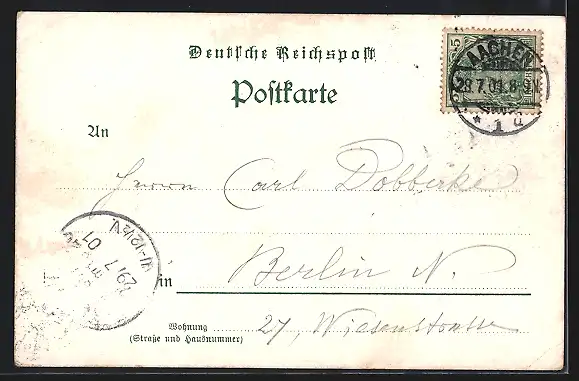 Deutsche Reichspost
Postkarte
AACHEN
28.7.01. 8-9V.
* 1 d
An
Herrn Carl Dobberke
11-12½V.
29.7 01
in Berlin N.
Wohnung 27, Wiesenstrasse
(Straße und Hausnummer)